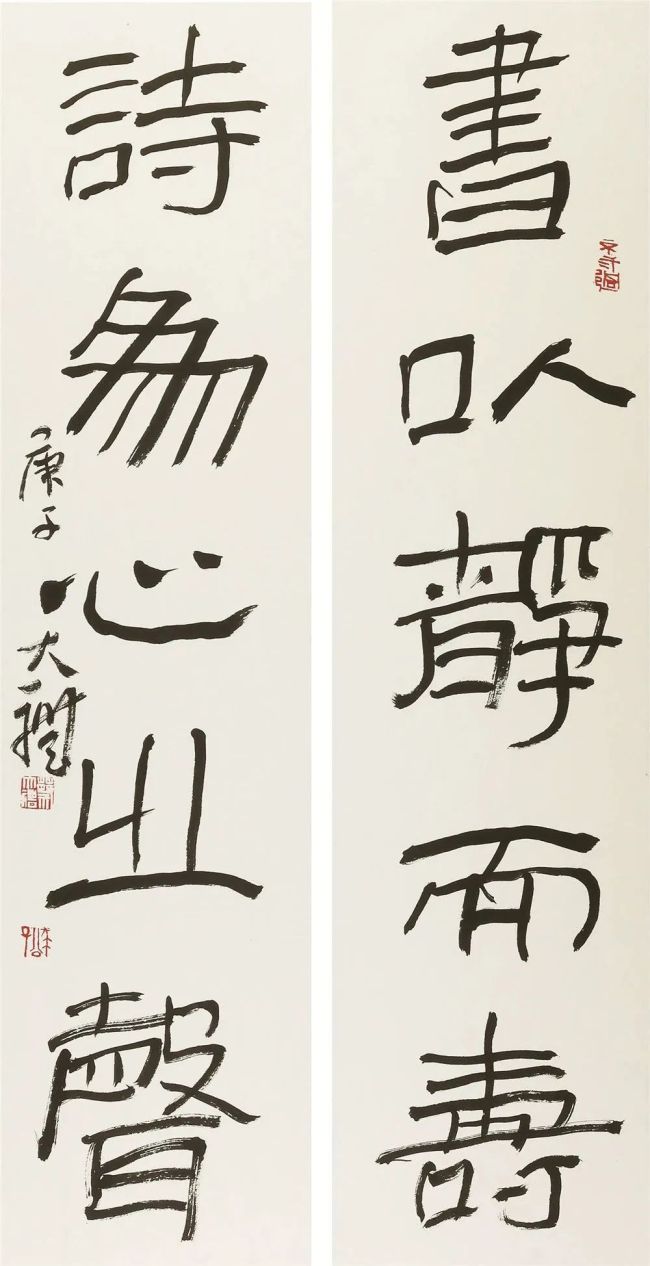 書以靜而壽
詩為心之聲
庚子